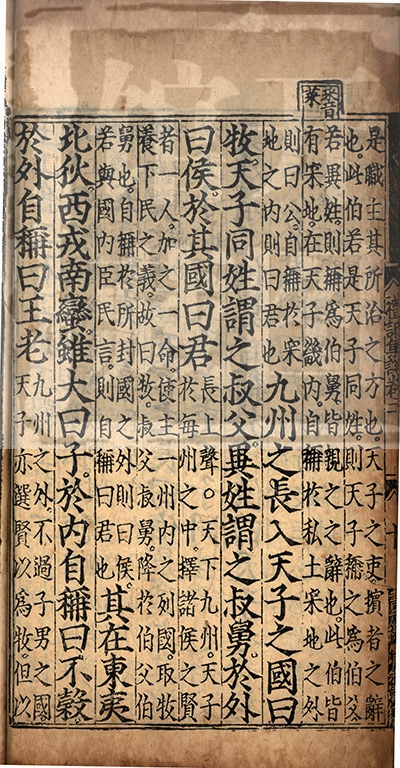 采音
菜
是職主其所治之方也。天子之吏擯者之辭
也。此伯若是天子同姓。則天子稱之爲伯父。
若異姓。則稱爲伯舅。皆親之之辭也。此伯皆
有采地。在天子畿內。自稱於私土采地之外
則曰公。自稱於采
地之內則曰君也
九州之長入天子之國曰
牧。天子同姓謂之叔父。異姓謂之叔舅。於外
曰侯。於其國曰君
長上聲○天下九州。天子
於每州之中。擇諸侯之賢
者一人。加之一命。使主一州內之列國。取牧
養下民之義。故曰牧。叔父叔舅。降於伯父伯
舅也。自稱於所封國之外則曰侯。
若與國內臣民言。則自稱曰君也
其在東夷
北狄。西戎南蠻。雖大曰子。於內自稱曰不穀。
於外自稱曰王老
九州之外。不過子男之國。
天子亦選賢以爲牧。但以